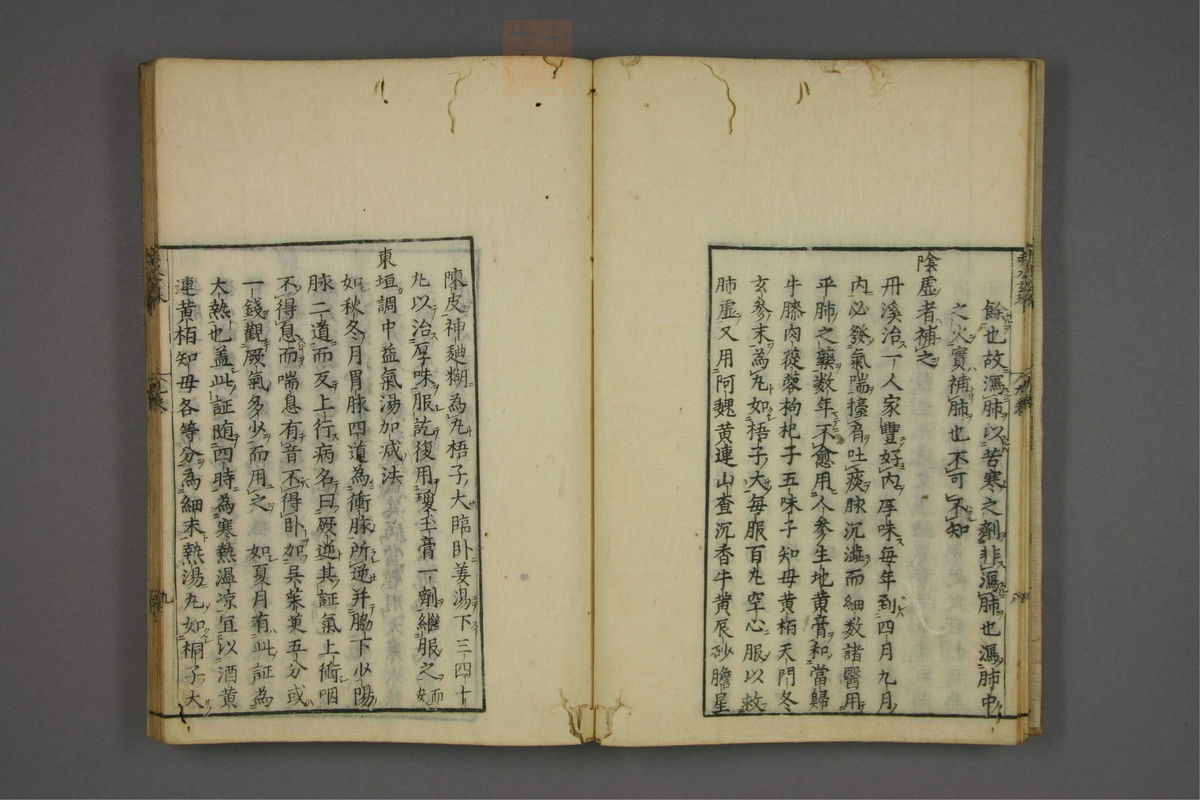 餘也故瀉肺以苦寒之劑非瀉肺也瀉肺中
之火實補肺也不可不知
陰虛者補之
丹溪治一人家豐好內厚味每年到四月九月
內必發氣喘擡肩吐痰脉沉澁而細数諸醫用
平肺之藥数年不愈用人參生地黄膏和當歸
牛膝肉蓯蓉枸杞子五味子知母黄栢天門冬
玄參末為丸如梧子大每服百丸空心服以救
肺虛又用阿魏黄連山查沉香牛黄辰砂膽星
陳皮神麯糊為丸梧子大臨卧姜湯下三四十
丸以治厚味服訖復用瓊玉膏一劑繼服之而安
東垣調中益氣湯加減法
如秋冬月胃脉四道為衝脉所逆并脇下少陽
脉二道而反上行病名曰厥逆其証氣上衝咽
不得息而喘息有音不得卧加吳茱萸五分或
一錢觀厥氣多少而用之 如夏月有此証為
大熱也盖此証随四時為寒熱温凉宜以酒黄
連黄栢知母各等分為細末熱湯丸如桐子大
九